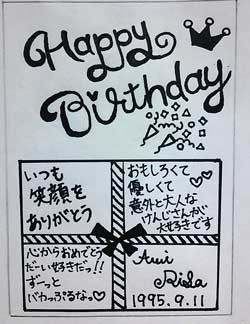 Happy
Birthday
いつも
笑顔を
ありがとう
おもしろくて
優しくて
意外と大人な
けんじさんが
大好きです
心からおめでとう
だーい好きだっ!!
ずーっと
バカっぷるなっ♡
1995.9.11